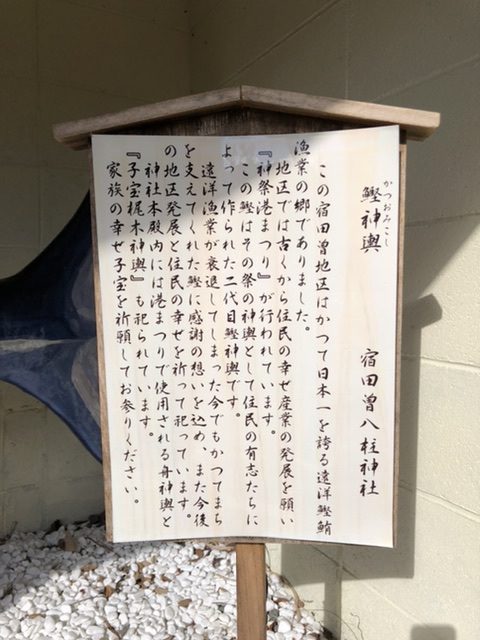 かつおみこし
鰹神輿　宿田曽八柱神社
この宿田曽地区はかつて日本一を誇る遠洋鰹鮪
漁業の郷でありました。
地区では古くから住民の幸せ産業の発展を願い
『神祭港まつり』が行われています。
この鰹はその祭の神輿として住民の有志たちに
よって作られた二代目鰹神輿です。
遠洋漁業が衰退してしまった今でもかつてまち
を支えてくれた鰹に感謝の想いを込め、また今後
の地区発展と住民の幸せを祈って祀っています。
神社本殿内には港まつりで使用される舟神輿と
『子宝梶木神輿』も祀られています。
家族の幸せ子宝を祈願してお参りください。